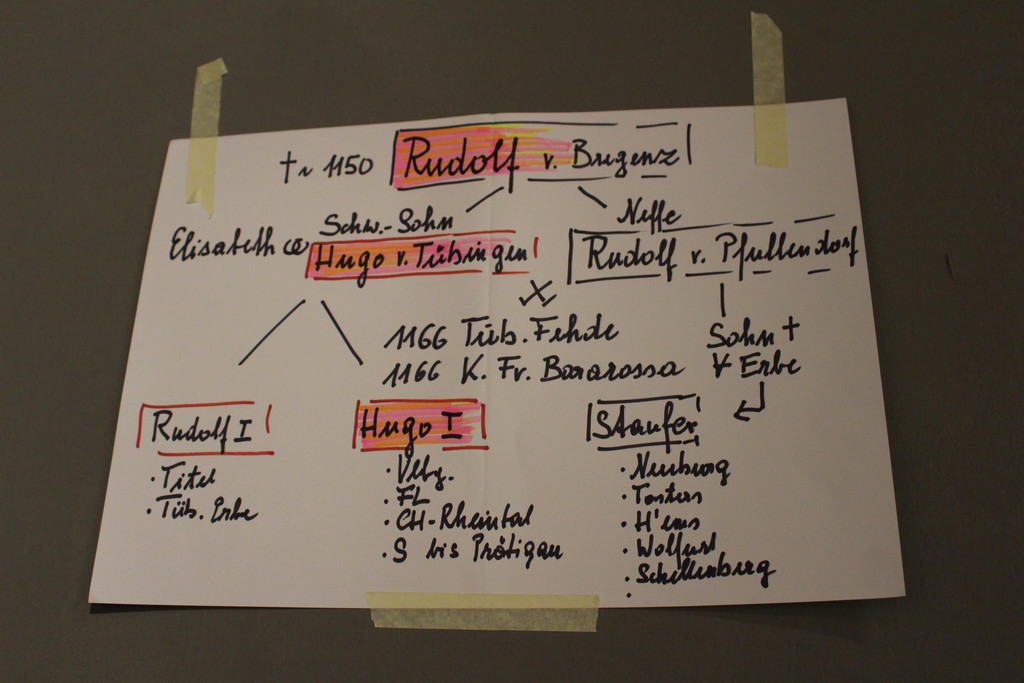 † ~ 1150 Rudolf v. Bregenz
Schw.-Sohn
Neffe
Elisabeth ∞ Hugo v. Tübingen
Rudolf v. Pfullendorf
1166 Tüb. Fehde
1166 K. Fr. Bararossa
Sohn †
Erbe
Rudolf I
· Titel
· Tüb. Erbe
Hugo I
· Vlbg.
· FL
· CH-Rheintal
· S bis Prätigau
Staufer
· Neuburg
· Tosters
· H'ems
· Wolfurt
· Schellenberg
·